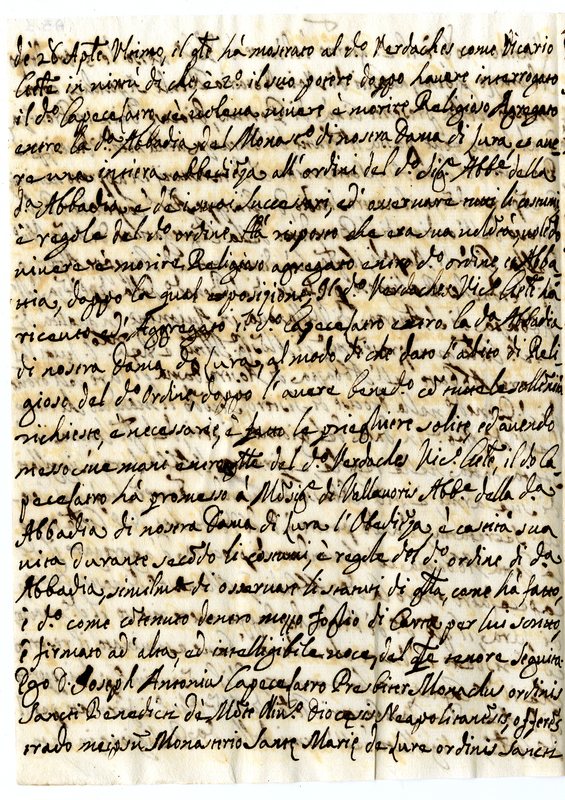 de 28 Apte Ultimo, il qte hà mostrato al do Verdaches come Vicario
in virtù di che è il suo potere doppo havere interrogato
il do Capecelatro, se voleva vivere è morire Religioso Agregato
entro la da Abbadia, del Monast.o di nostra Dama di Lura, et ave
re una intiera obbediēza all'ordini del do Sig.r Abb.e della
da Abbadia, è de suoi successori, ed osservare tutti li costumi
è regole del do ordine, Hà risposto che era sua volōtà
vivere è morire Religioso agregato entro do ordine, et Abba
tia, doppo la qual esposizione, Il do Verdaches Vic.o hà
ricevuto ed Aggregato il do Capecelatro entro la da Abbadia
di nostra Dama di Lura, al modo di che dato l'abito di Reli
gioso del do Ordine, doppo l'avere bened.o cō tutte le sollēnità
richieste, è necessarie, è fatto le preghiere solite, ed avendo
messo sue mani entro qtte del do Verdaches Vic.o il do Ca
pecelatro hà promesso à Mōsig.r di Vallavoris Abb.e della da
Abbadia di nostra Dama di Lura l'Obediēza, è castità sua
vita durante secōdo li costumi, è regole del do ordine di da
Abbadia, similmte di osservare li statuti di qlla, come hà fatto,
è do come cōtenuto dentro mezzo foglio di Carta per lui scritto,
è firmato ad'alta, ed intelligibile voce, del qle tenore seguita
Ego D. Joseph Antonius Capecelatro Presbiter Monacus ordinis
Sancti Benedicti de Mōte Diocesis Neapolitanēsis offerēs
trado meipsū Monasterio Sante Marie de Lure ordinis Sancti